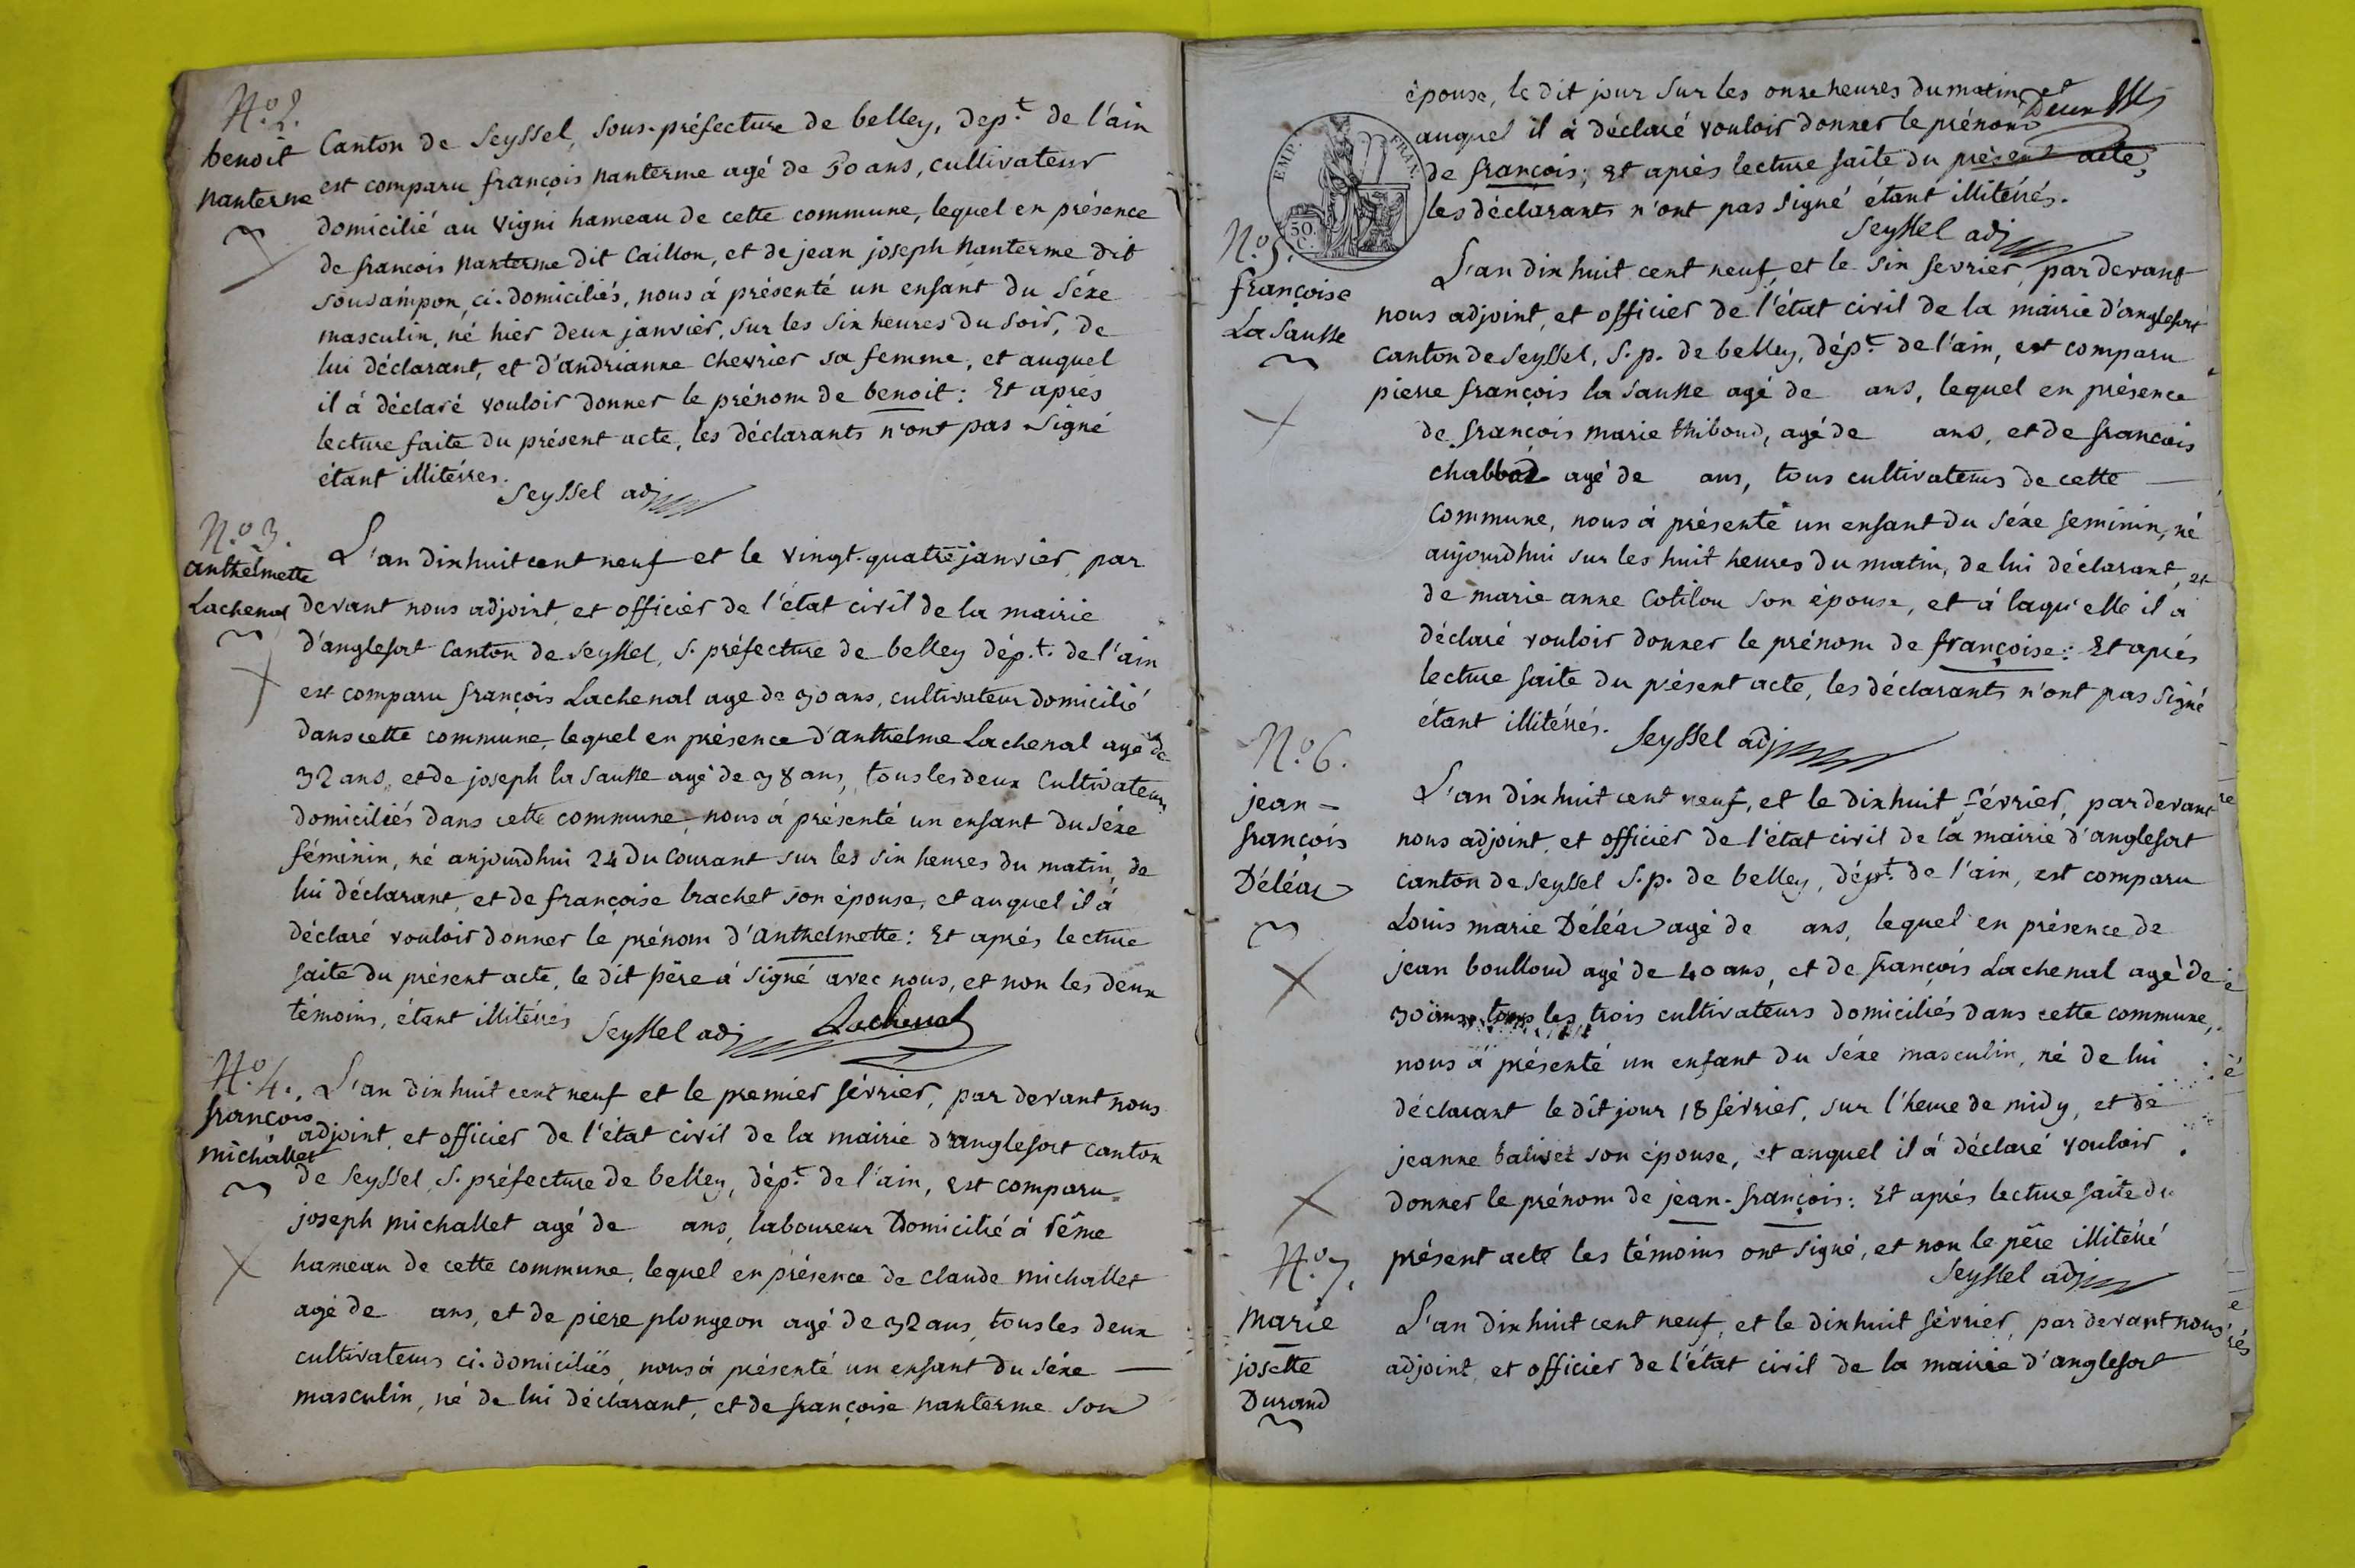 N.º 2.
benoit
nanterme
Canton de Seyssel, sous-préfecture de belley, dep.t de l'ain
est comparu françois nanterme agé de 50 ans, cultivateur
domicilié au vigni hameau de cette commune, lequel en présence
de françois nanterme dit Caillon, et de jean joseph nanterme dit
sousampon, ci-domiciliés, nous à présenté un enfant du séxe
masculin, né hier deux janvier, sur les six heures du soir, de
lui déclarant, et d'andrianne chevrier sa femme, et auquel
il à déclaré vouloir donner le prénom de benoit: Et aprés
lecture faite du présent acte, les déclarants n'ont pas signé
étant illitérés.
Seyssel adj
N.º 3.
anthelmette
Lachenal
L'an dix huit cent neuf et le vingt-quatre janvier, par
devant nous adjoint, et officier de l'état civil de la mairie
d'anglefort canton de seyssel, S. préfecture de belley dép.t. de l'ain
est comparu françois Lachenal agé de 30 ans, cultivateur domicilié
dans cette commune, lequel en présence d'anthelme Lachenal agé de
32 ans, et de joseph la sausse agé de 38 ans, tous les deux cultivateurs
domiciliés dans cette commune, nous à présenté un enfant du séxe
féminin, né aujourdhui 24 du courant sur les six heures du matin, de
lui déclarant, et de françoise brachet son épouse, et auquel il à
déclaré vouloir donner le prénom d'anthelmette: Et aprés lecture
faite du présent acte, le dit père à signé avec nous, et non les deux
témoins, étant illitérés
Seyssel adj Lachenal
N.º 4.
françois
michallet
L'an dix huit cent neuf et le premier février, par devant nous
adjoint, et officier de l'état civil de la mairie d'anglefort canton
de Seyssel, S. préfecture de belley, dép.t de l'ain, est comparu
joseph michallet agé de ans, laboureur Domicilié à rême
hameau de cette commune, lequel en présence de claude michallet
agé de ans, et de piere plongeon agé de 32 ans, tous les deux
cultivateurs ci-domiciliés, nous à présenté un enfant du séxe
masculin, né de lui déclarant, et de françoise nanterme son
épouse, le dit jour sur les onze heures du matin, et
Deux
auquel il à déclaré vouloir donner le prénom
de françois; Et aprés lecture faite du présent acte,
les déclarants n'ont pas signé étant illitérés.
Seyssel adj
EMP. FRAN.
50. C.
N.º 5.
françoise
La sausse
L'an dix huit cent neuf, et le six fevrier, par devant
nous adjoint, et officier de l'état civil de la mairie d'anglefort
canton de Seyssel, S. p. de belley, dép.t de l'ain, est comparu
pierre françois la sausse agé de ans, lequel en présence
de françois marie thiboud, agé de ans, et de françois
chabbod agé de ans, tous cultivateurs de cette
commune, nous à présenté un enfant du séxe feminin, né
aujourdhui sur les huit heures du matin, de lui déclarant, et
de marie anne Cotilou son épouse, et à laqu'elle il à
déclaré vouloir donner le prénom de françoise: Et aprés
lecture faite du présent acte, les déclarants n'ont pas signé
étant illitérés.
Seyssel adj
N.º 6.
jean-
françois
Déléaz
L'an dix huit cent neuf, et le dix huit février, par devant
nous adjoint, et officier de l'état civil de la mairie d'anglefort
canton de Seyssel S. p. de belley, dép.t de l'ain, est comparu
Louis marie Déléaz agé de ans, lequel en présence de
jean boulloud agé de 40 ans, et de françois Lachenal agé de
30 ans, tous les trois cultivateurs domiciliés dans cette commune,
nous à présenté un enfant du séxe masculin, né de lui
déclarant le dit jour 18 février, sur l'heure de midy, et de
jeanne balivet son épouse, et auquel il à déclaré vouloir
donner le prénom de jean-françois: Et aprés lecture faite du
présent acte les témoins ont signé, et non le père illitéré
Seyssel adj
N.º 7.
marie
josette
Durand
L'an dix huit cent neuf, et le dix huit février, par devant nous
adjoint, et officier de l'état civil de la mairie d'anglefort